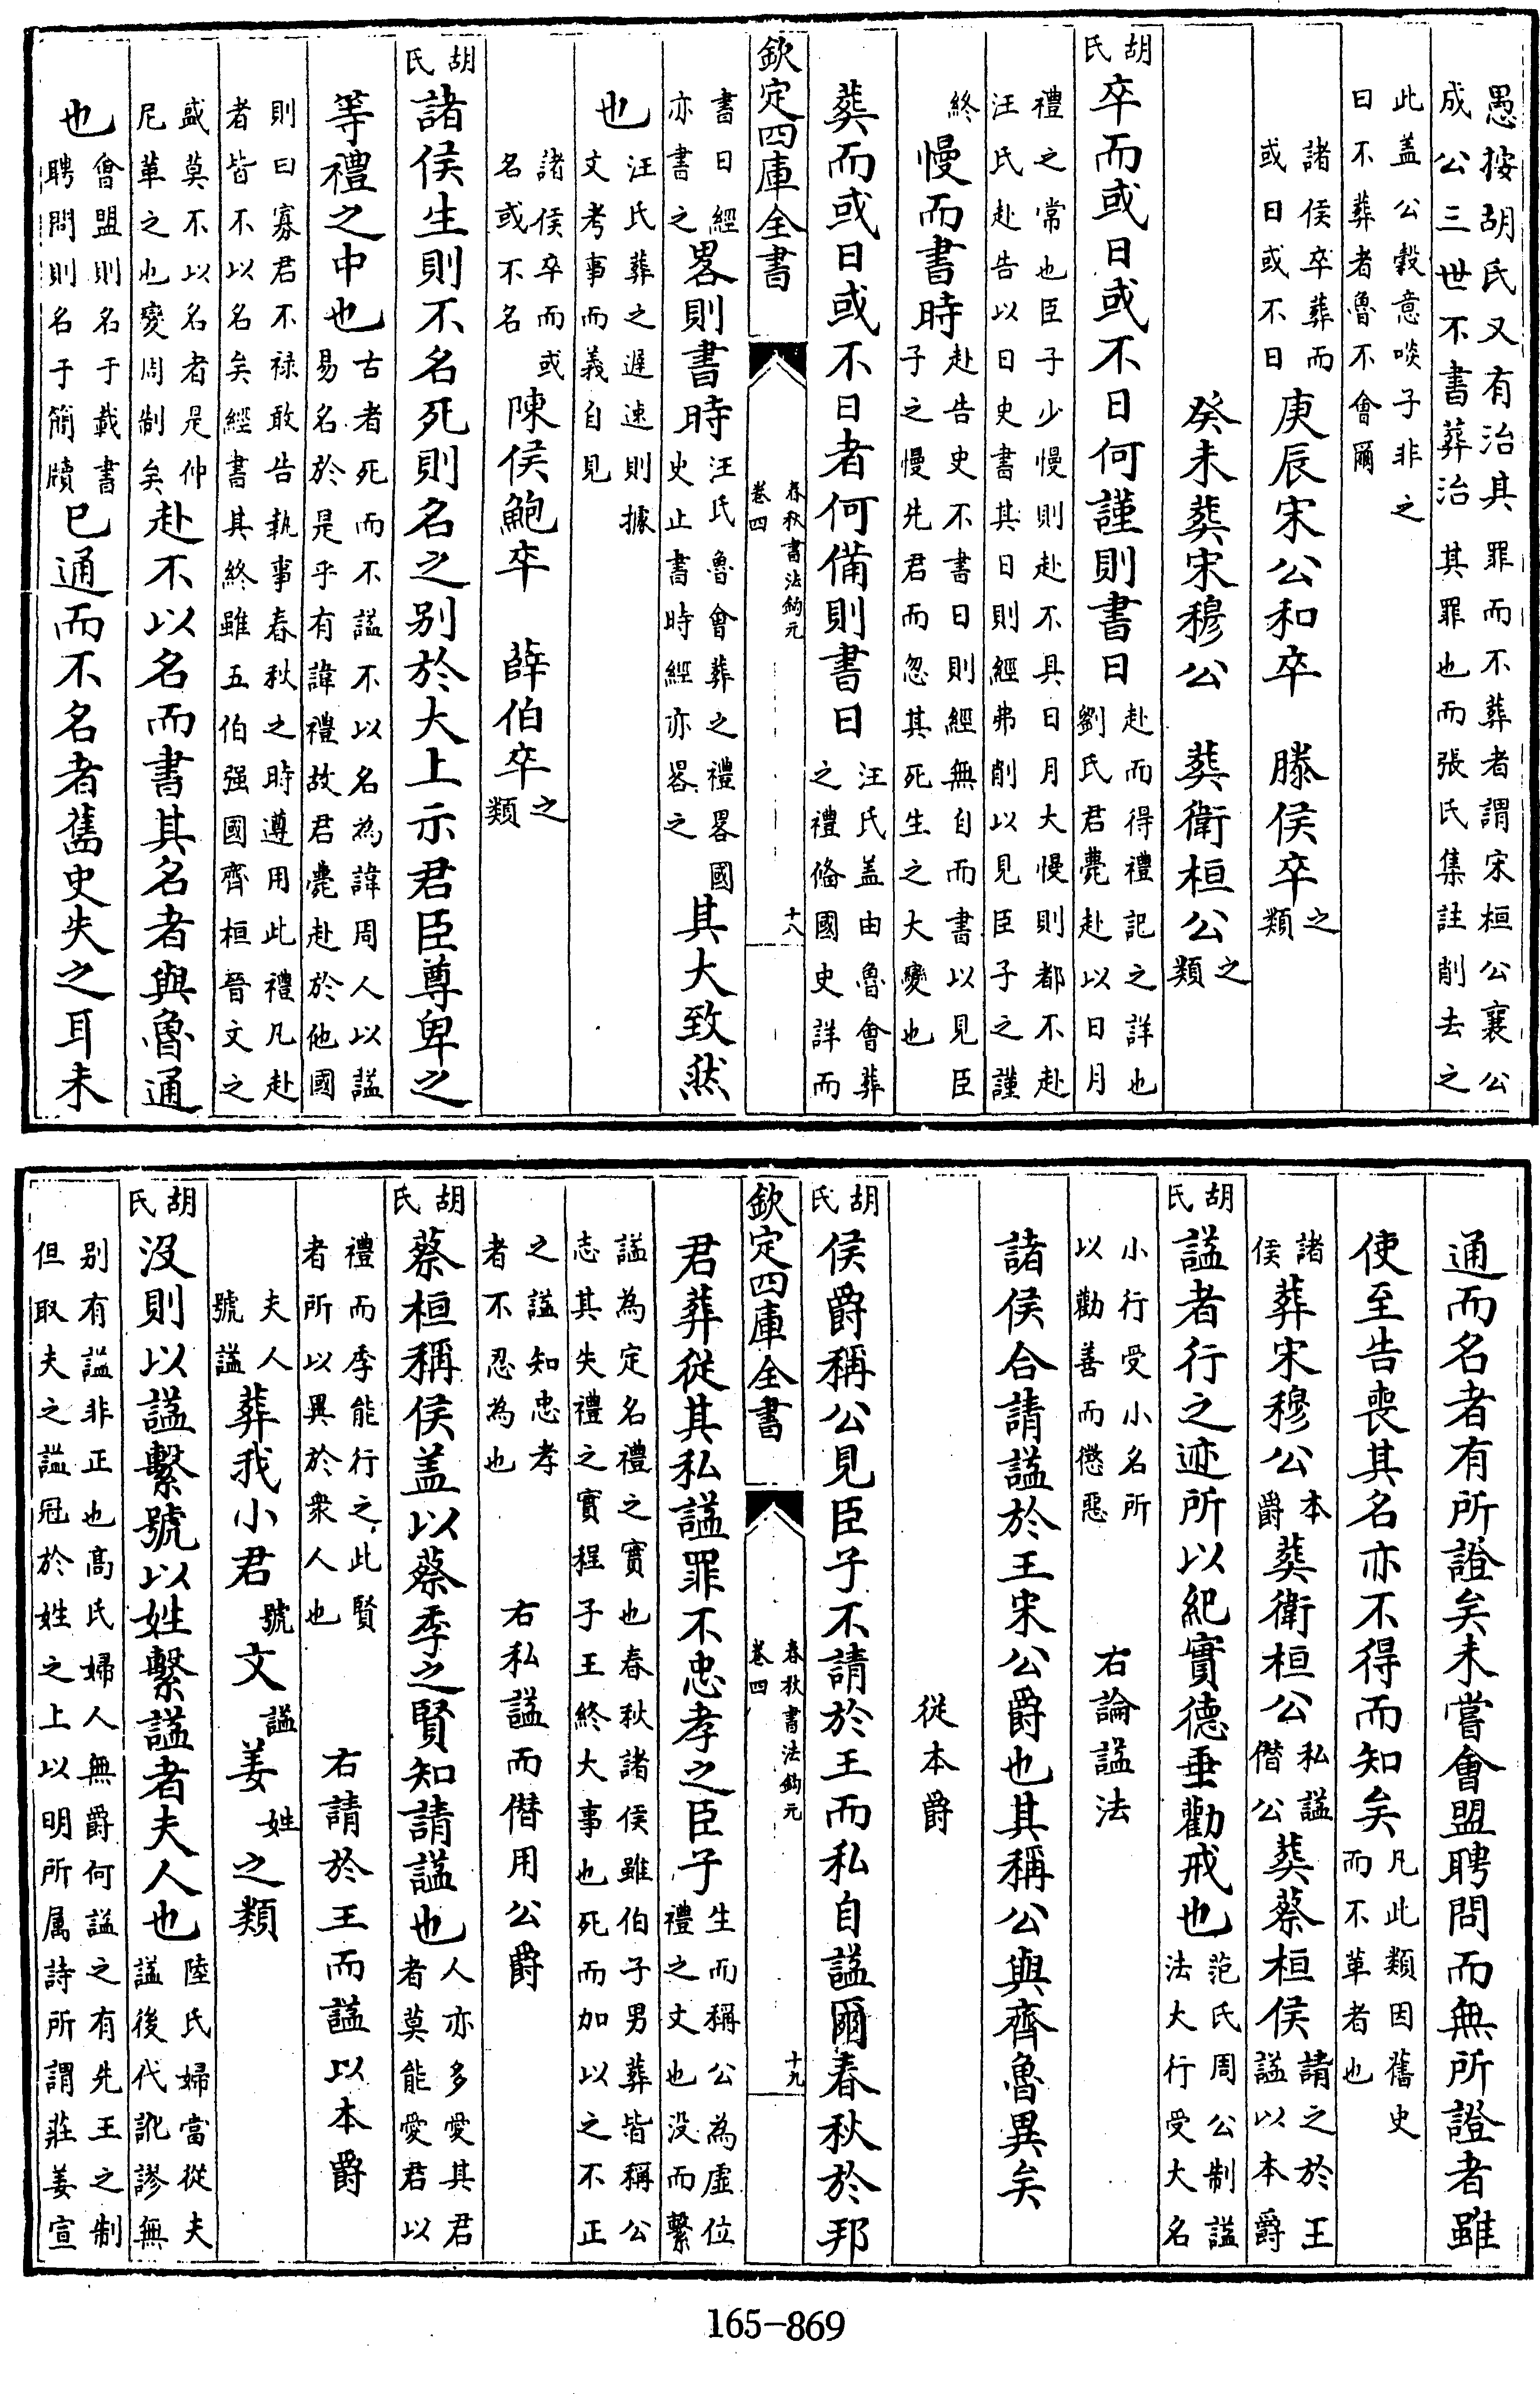 愚按胡氏又有治其罪而不葬者謂宋桓公襄公
成公三世不書葬治其罪也而張氏集註削去之
此盖公穀意啖子非之
曰不葬者魯不會爾
諸侯卒葬而
或日或不日
庚辰宋公和卒　滕侯卒之類
癸未葬宋穆公　葬衛桓公之類
胡氏
卒而或日或不日何謹則書日
赴而得禮記之詳也
劉氏君薨赴以日月
禮之常也臣子少慢則赴不具日月大慢則都不赴
汪氏赴告以日史書其日則經弗削以見臣子之謹
終
慢而書時
赴告史不書日則經無自而書以見臣
子之慢先君而忽其死生之大變也
葬而或日或不日者何備則書日
汪氏盖由魯會葬
之禮備國史詳而
欽定四庫全書
春秋書法鈎元
卷四
十八
書日經
亦書之
畧則書時
汪氏魯會葬之禮畧國
史止書時經亦畧之
其大致然
也
汪氏葬之遲速則據
文考事而義自見
諸侯卒而或
名或不名
陳侯鮑卒　薛伯卒之類
胡氏
諸侯生則不名死則名之别於大上示君臣尊卑之
等禮之中也
古者死而不諡不以名為諱周人以諡
易名於是乎有諱禮故君薨赴於他國
則曰寡君不禄敢告執事春秋之時遵用此禮凡赴
者皆不以名矣經書其終雖五伯强國齊桓晉文之
盛莫不以名者是仲
尼革之也變周制矣
赴不以名而書其名者與魯通
也
會盟則名于載書
聘問則名于簡牘
已通而不名者舊史失之耳未
通而名者有所證矣未嘗會盟聘問而無所證者雖
使至告喪其名亦不得而知矣
凡此類因舊史
而不革者也
諸侯
葬宋穆公
本爵
葬衛桓公
私諡
僭公
葬蔡桓侯
請之於王
諡以本爵
胡氏
諡者行之迹所以紀實德垂勸戒也
范氏周公制諡
法大行受大名
小行受小名所
以勸善而懲惡
右論諡法
諸侯合請諡於王宋公爵也其稱公與齊魯異矣
從本爵
胡氏
侯爵稱公見臣子不請於王而私自諡爾春秋於邦
欽定四庫全書
春秋書法鈎元
卷四
十九
君葬從其私諡罪不忠孝之臣子
生而稱公為虛位
禮之文也没而繫
諡為定名禮之實也春秋諸侯雖伯子男葬皆稱公
志其失禮之實程子王終大事也死而加以之不正
之諡知忠孝
者不忍為也
右私諡而僭用公爵
胡氏
蔡桓稱侯盖以蔡季之賢知請諡也
人亦多愛其君
者莫能愛君以
禮而季能行之此賢
者所以異於衆人也
右請於王而諡以本爵
夫人
號諡
葬我小君號文諡姜姓之類
胡氏
没則以諡繫號以姓繫諡者夫人也
陸氏婦當從夫
諡後代訛謬無
别有諡非正也高氏婦人無爵何諡之有先王之制
但取夫之諡冠於姓之上以明所属詩所謂莊姜宣
165-869